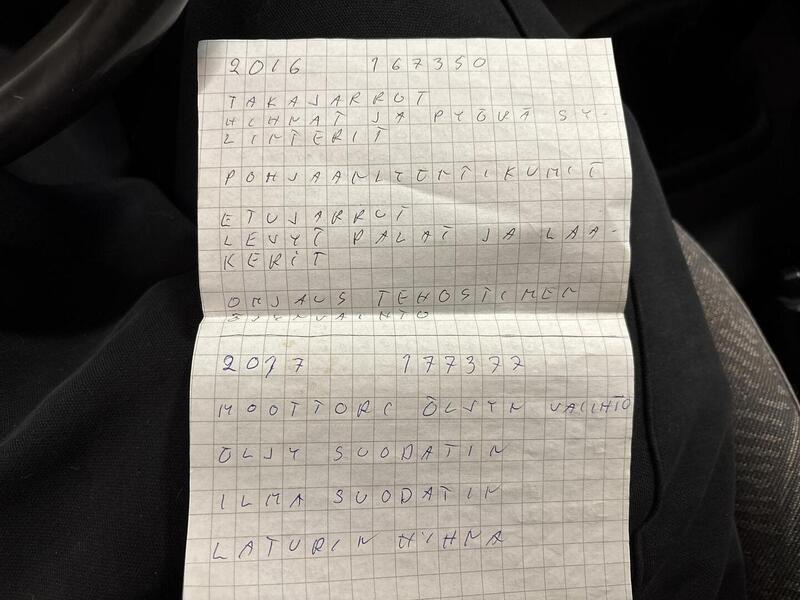 2016 167350
TAKAJARRUT
HIHNAT JA PYÖRÄ SY-
LINTERIT
POHJAANLYÖNTIKUMIT
ETUJARRUT
LEVYT PALAT JA LAA-
KERIT
OHJAUS TEHOSTIMEN
2017 177377
MOOTTORI ÖLJYN VAIHTO
ÖLJY SUODATIN
ILMA SUODATIN
LATURIN HIHNA